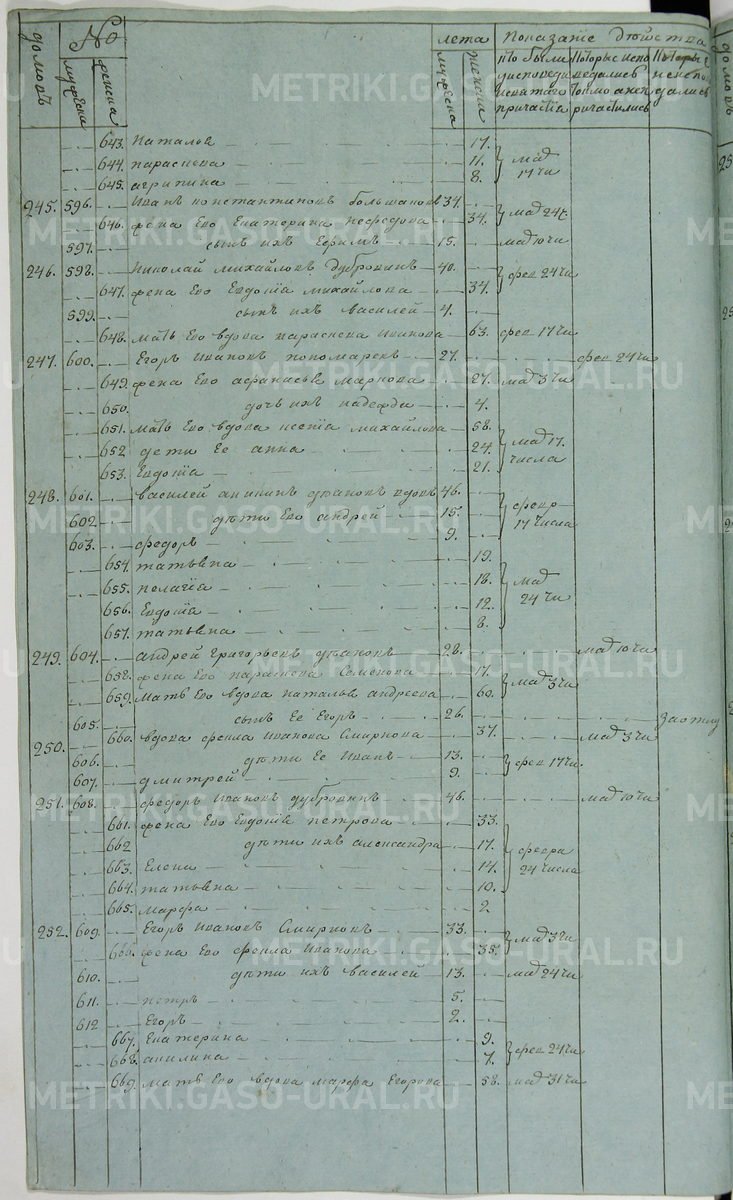 домовъ № лета Показание дѣйства домовъ
мужеска женска мужеска женска кто были у исповеди и святаго причастiя Которые исповедались токмо а не причастились Которы неисповедались
643. Наталья 17.
644. параскева 11. } мар
645. агрипина 8. 17 чи
245. 596. Иванъ константиновъ большаковъ 37.
646. жена Его Екатерина нефедова 34. } мар 24 ч
597. сынъ ихъ Ефимъ 15. мар 10 чи
246. 598. Николай михайловъ Дубровинъ 40.
647. жена Его Евдокiа михайлова 37. } фев 24 чи
599. сынъ ихъ василей 4.
648. мать Его вдова параскева Иванова 63. фев 17 чи
247. 600. Егоръ Ивановъ пономаревъ 27. фев 24 чи
649. жена Его афанасья маркова 27. мар 3 чи
650. дочь ихъ надежда 4.
651. мать Его вдова ксенiа михайлова 58.
652 дети Ее анна 24. } мар 17.
653. Евдокiа 21. числа
248. 601. василей аникинъ вдовъ 46.
602 дѣти Его андрей 15. } февр 17 числа
603. федоръ 9.
654. татьяна 19.
655. пелагiа 18. } мар
656. Евдокiа 12. 24 чи
657. татьяна 8.
249. 604. андрей Григорьевъ 28. мар 10 чи
658. жена Его параскева Семенова 17.
659. Мать Его вдова наталья андреева 60. } мар 3 чи
605. сынъ Ее Егоръ 26. за отлу
250. 660. вдова фекла Иванова Смирнова 37. мар 3 чи
606. дѣти Ее Иванъ 13. } фев 17 чи
607. дмитрей 9.
251. 608. федоръ Ивановъ дубровинъ 46. мар 10 чи
661. жена Его Евдокiа петрова 33.
662 дѣти ихъ александра 17. } февра
663. Елена 14. 24 числа
664. татьяна 10.
665. марфа 2
252. 609. Егоръ Ивановъ Смирновъ 33. } мар 3 чи
666. жена Его фекла Иванова 35.
610. дѣти ихъ василей 13. мар 24 чи
611. петръ 5.
612 Егоръ 2.
667. Екатерина 9. } фев 24 чи
668. акилина 7.
669. мать Его вдова марфа Егорова 58. мар 31 чи
METRIKI.GASO-URAL.RU